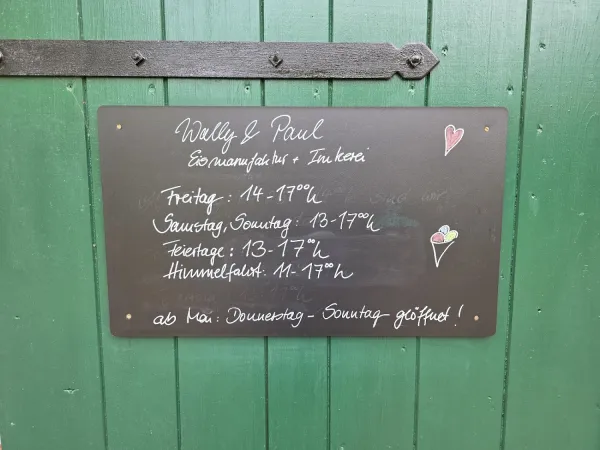 Wally & Paul
Eismanufaktur + Imkerei
Freitag: 14-17⁰⁰h
Samstag, Sonntag: 13-17⁰⁰h
Feiertage: 13-17⁰⁰h
Himmelfahrt: 11-17⁰⁰h
ab Mai: Donnerstag - Sonntag geöffnet!